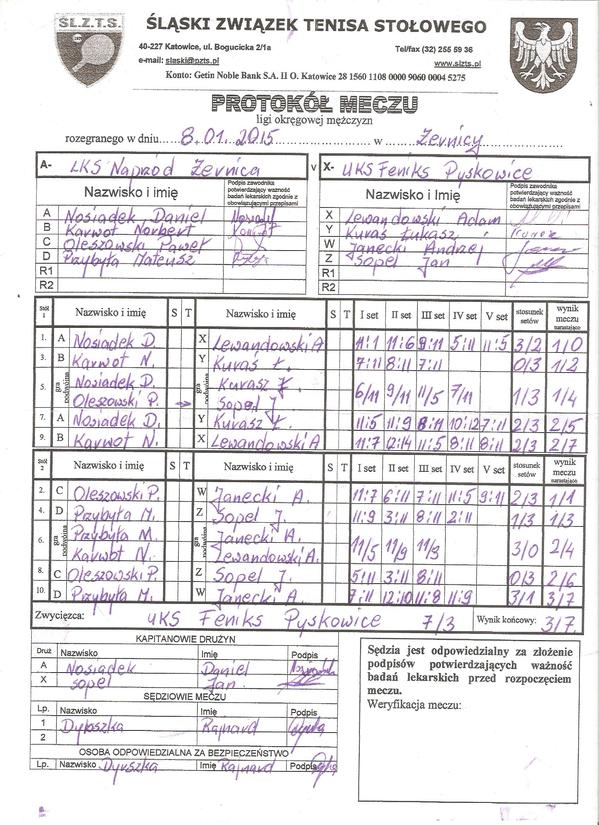 ŚL.Z.T.S.
ŚLĄSKI ZWIĄZEK TENISA STOŁOWEGO
40-227 Katowice, ul. Bogucicka 2/1a Tel/fax (32) 255 59 36
e-mail: slaski@pzts.pl www.slzts.pl
Konto: Getin Noble Bank S.A. II O. Katowice 28 1560 1108 0000 9060 0004 5275
PROTOKÓŁ MECZU
ligi okręgowej mężczyzn
rozegranego w dniu 8.01.2015 w Żernicy
A- LKS Naprzód Żernica v X- UKS Feniks Pyskowice
Nazwisko i imię Podpis zawodnika potwierdzający ważność badań lekarskich zgodnie z obowiązującymi przepisami Nazwisko i imię Podpis zawodnika potwierdzający ważność badań lekarskich zgodnie z obowiązującymi przepisami
A Nosiadek Daniel X Lewandowski Adam
B Karwot Norbert Y Kuraś Łukasz
C Oleszowski Paweł W Janecki Andrzej
D Przybyła Mateusz Z Sopel Jan
R1 R1
R2 R2
Stół 1 Nazwisko i imię S T Nazwisko i imię S T I set II set III set IV set V set stosunek setów wynik meczu narastająco
1. A Nosiadek D. X Lewandowski A 11:6 5:11 11:5 3/2 1/0
3. B Karwot N. Y Kuraś Ł. 7:11 8:11 7:11 0/3 1/2
5. gra podwójna Nosiadek D. gra podwójna Kurasz Ł. 6/11 9/11 11/5 7/11 1/3 1/4
Oleszowski P. Sopel J
7. A Nosiadek D. Y Kurasz Ł. 11:5 11:9 8:11 10:12 7:11 2/3 2/5
9. B Karwot N. X Lewandowski A 11:7 12:14 11:5 8:11 8:11 2/3 2/7
Stół 2 Nazwisko i imię S T Nazwisko i imię S T I set II set III set IV set V set stosunek setów wynik meczu narastająco
2. C Oleszowski P. W Janecki A. 11:7 6:11 7:11 11:5 9:11 2/3 1/1
4. D Przybyła M. Z Sopel J. 11:9 3:11 8:11 2:11 1/3 1/3
6. gra podwójna Przybyła M. gra podwójna Janecki A. 11/5 11/9 11/3 3/0 2/4
Karwot N. Lewandowski A.
8. C Oleszowski P. Z Sopel J. 5:11 3:11 8:11 0/3 2/6
10. D Przybyła M. W Janecki A. 7:11 12:10 11:8 11:9 3/1 3/7
Zwycięzca: UKS Feniks Pyskowice 7/3 Wynik końcowy: 3/7
KAPITANOWIE DRUŻYN
Druż Nazwisko Imię Podpis
A Nosiadek Daniel
X Sopel Jan
SĘDZIOWIE MECZU
Lp. Nazwisko Imię Podpis
1 Dyroszka Rajnard
2
OSOBA ODPOWIEDZIALNA ZA BEZPIECZEŃSTWO
Lp. Nazwisko Dyroszka Imię Rajnard Podpis
Sędzia jest odpowiedzialny za złożenie
podpisów potwierdzających ważność
badań lekarskich przed rozpoczęciem
meczu.
Weryfikacja meczu: